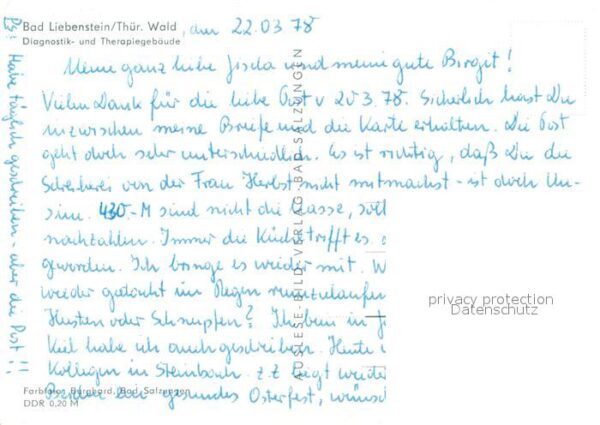 Bad Liebenstein/Thür. Wald, den 22.03.78
Diagnostik- und Therapiegebäude
Meine ganz liebe Gisela und meine gute Birgit!
Vielen Dank für die liebe Post v 20.3.78. Sicherlich hast Du
inzwischen meine Briefe und die Karte erhalten. Die Post
geht doch sehr unterschiedlich. Es ist richtig, daß Du die
Schreiberei von der Frau Herbst nicht mitmachst - ist doch Un-
sinn. 430.-M sind nicht die Casse, soll
nachzahlen. Immer die Küche trifft es
geworden. Ich bringe es wieder mit. W
wieder gedacht im Regen rumzulaufen
Husten oder Schnupfen? Ich bin in
Kiel habe ich auch geschrieben. Heute
Kollegen in Steinbach. z.Z liegt wieder
Beiden ein gesundes Osterfest, wünsc
Ps: Habe täglich geschrieben - aber die Post!!
AUSLESE-BILD-VERLAG-BAD SALZUNGEN
privacy protection
Datenschutz
Farbfoto: Burghard, Bad Salzungen
DDR 0,20 M